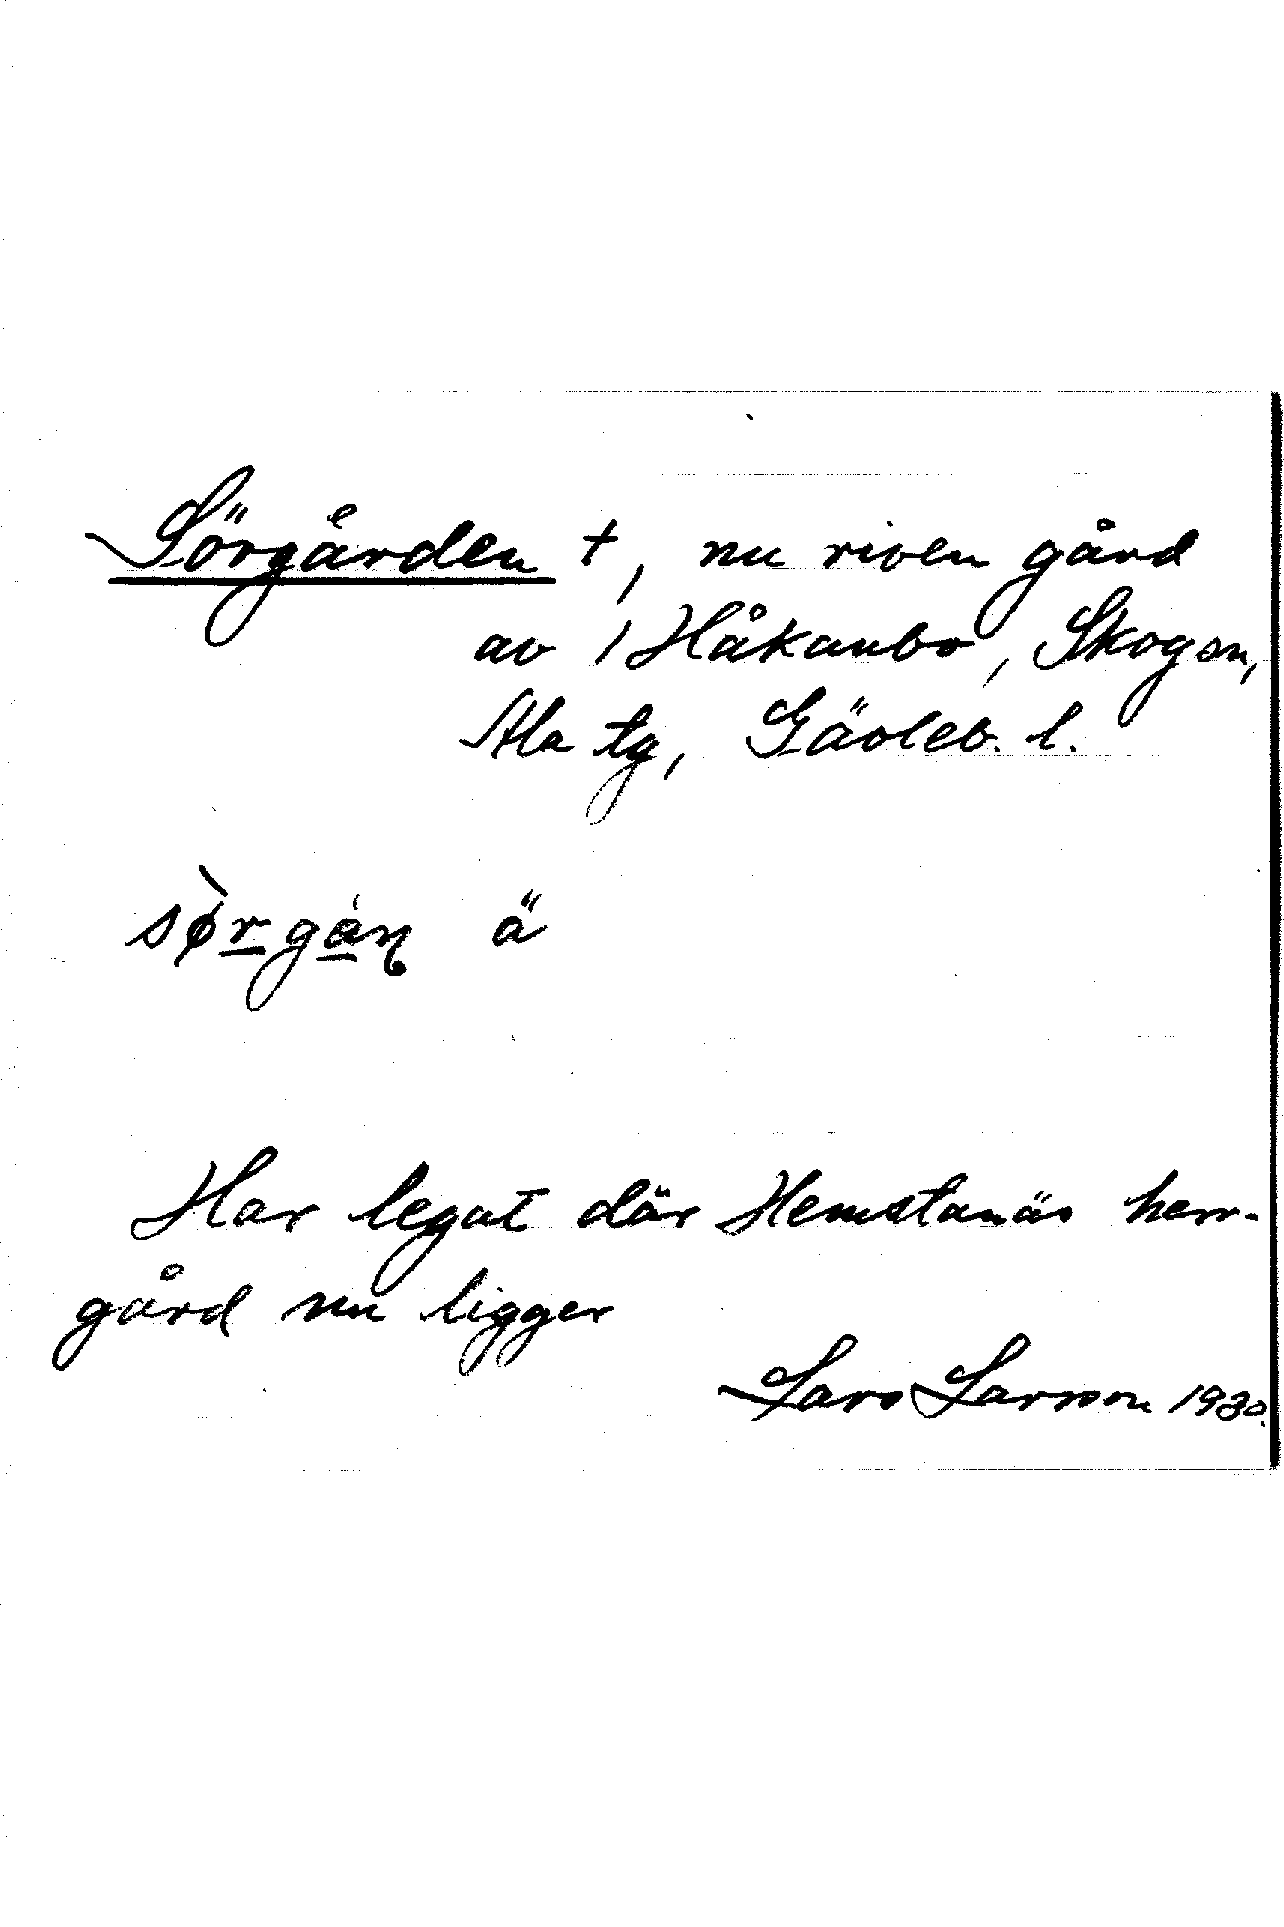 Sörgården +, nu riven gård
av 1 Håkanbo, Skogen,
Ala tg, Gävleb. l.
sø̀rgàn ä
Har legat där Hemstanäs herr-
gård nu ligger
Lars Larsson 1930.